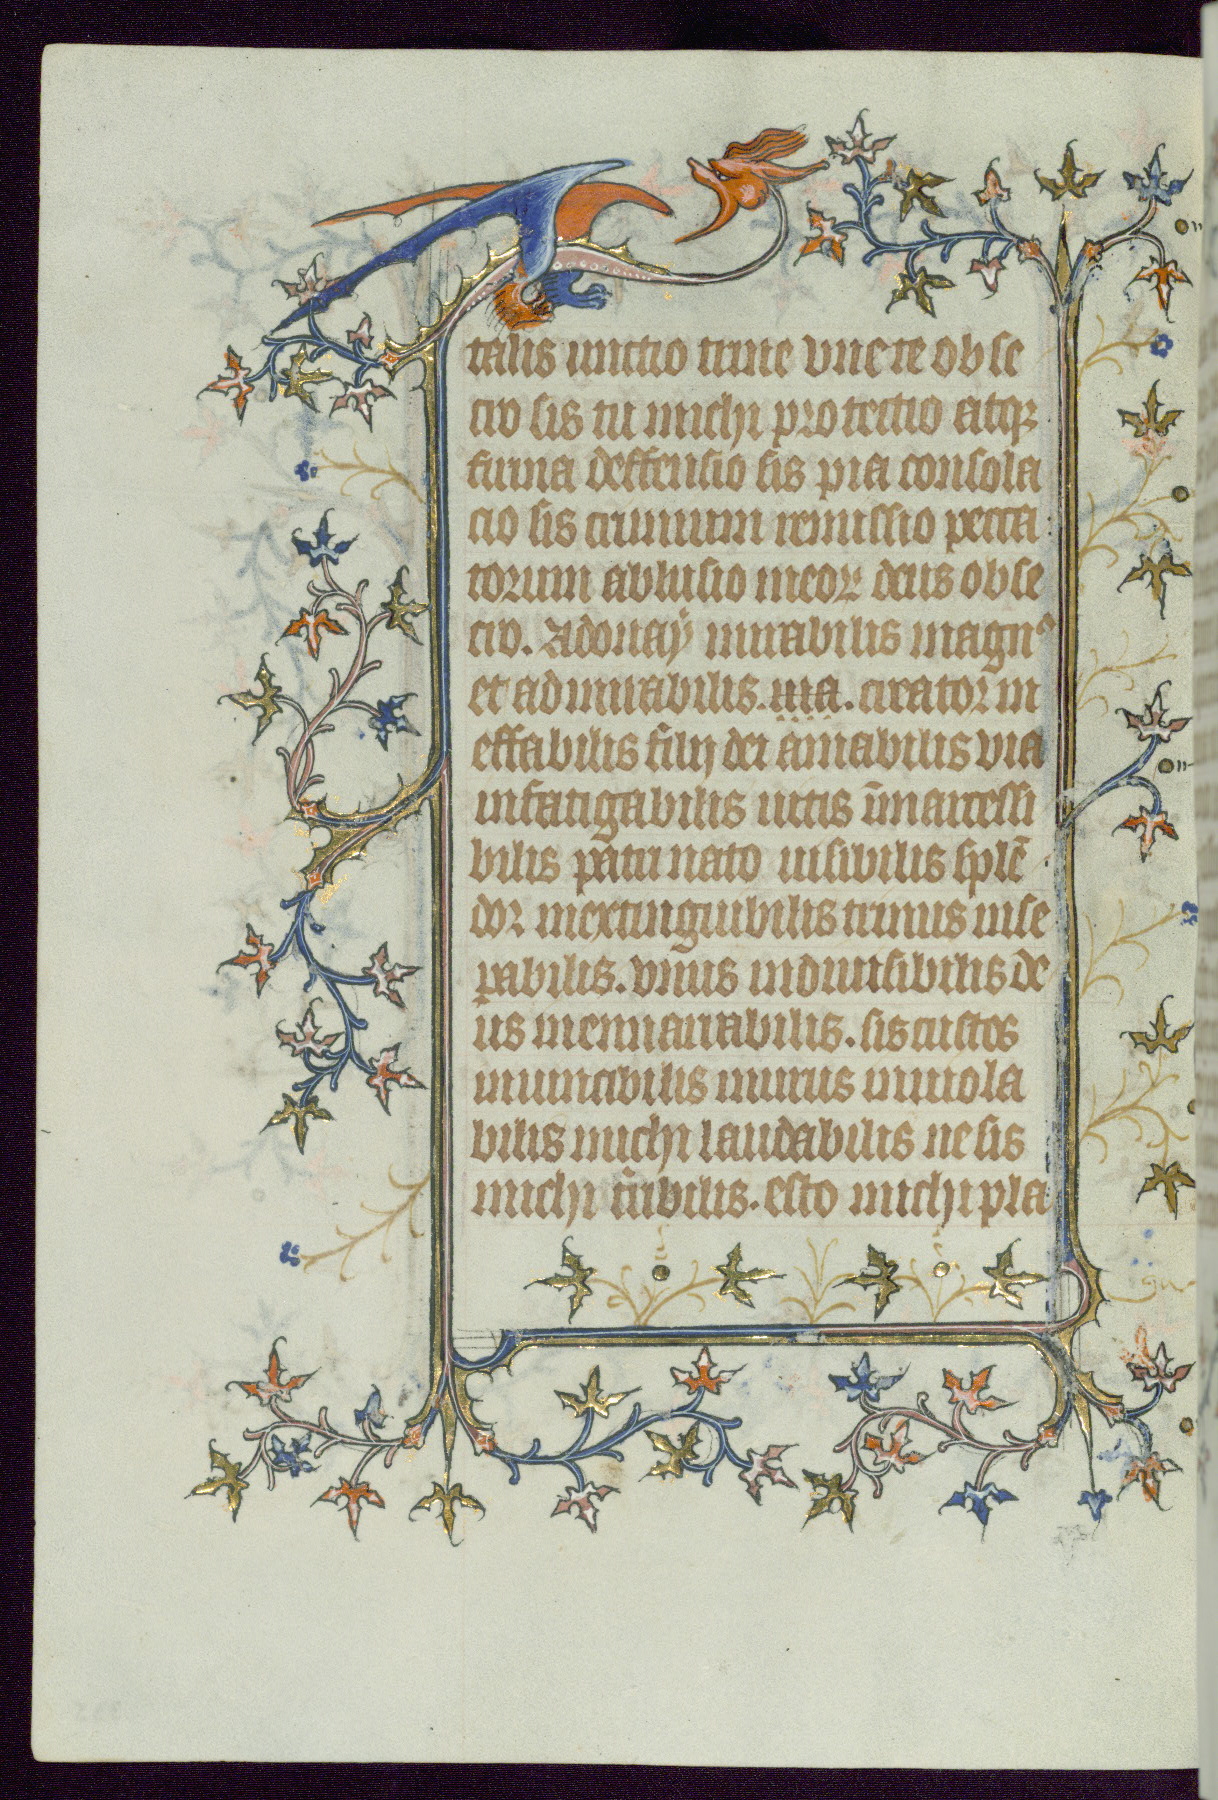 talis unctio trine vne te obse
cro sis tu michi protectio atqꝫ
firma deffensio sis pia consola
cio sis criminum remissio pecca
torum ablusio meoꝝ deus obse
cro. Adonaÿ mirabilis magnꝰ
et admirabilis. creator in
effabilis filij dei amabilis via
infatigabilis uitis īnaccessi
bilis patri nato uisibilis splē
dor inextinguibilis trinus inse
pabilis. vnus indiuisibilis de
us inennarrabilis. sis custos
inuincibilis murus inuiola
bilis michi laudabilis ne sis
michi esto michi pla